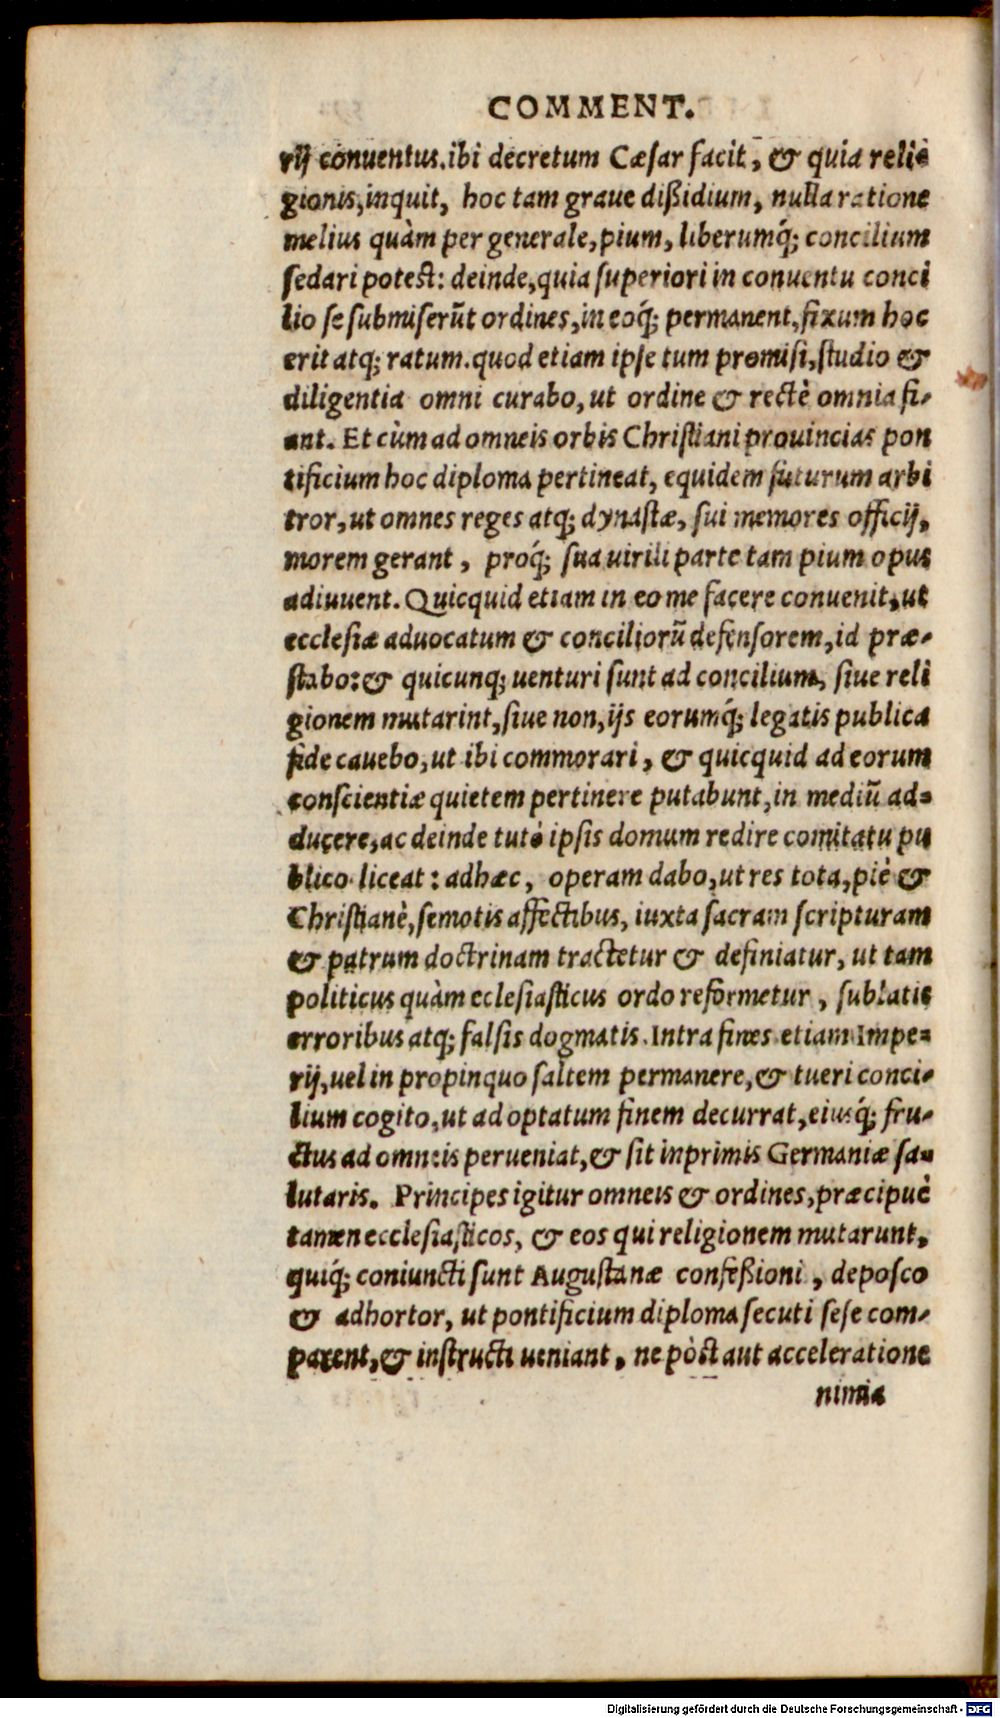 COMMENT.
rij conuentus. ibi decretum Cæsar facit, & quia reli=
gionis, inquit, hoc tam graue dißidium, nulla ratione
melius quàm per generale, pium, liberumq́; concilium
sedari potest: deinde, quia superiori in conuentu conci
lio se submiserūt ordines, in eoq́; permanent, fixum hoc
erit atq; ratum. quod etiam ipse tum promisi, studio &
diligentia omni curabo, ut ordine & rectè omnia fi-
ant. Et cùm ad omneis orbis Christiani prouincias pon
tificium hoc diploma pertineat, equidem futurum arbi
tror, ut omnes reges atq; dynastæ, sui memores officij,
morem gerant, proq́; sua uirili parte tam pium opus
adiuuent. Quicquid etiam in eo me facere conuenit, ut
ecclesiæ aduocatum & conciliorū defensorem, id præ-
stabo: & quicunq; uenturi sunt ad concilium, siue reli
gionem mutarint, siue non, ijs eorumq́; legatis publica
fide cauebo, ut ibi commorari, & quicquid ad eorum
conscientiæ quietem pertinere putabunt, in mediū ad=
ducere, ac deinde tutò ipsis domum redire comitatu pu
blico liceat: adhæc, operam dabo, ut res tota, piè &
Christianè, semotis affectibus, iuxta sacram scripturam
& patrum doctrinam tractetur & definiatur, ut tam
politicus quàm eclesiasticus ordo reformetur, sublatis
erroribus atq; falsis dogmatis. Intra fines etiam Impe=
rij, uel in propinquo saltem permanere, & tueri conci-
lium cogito, ut ad optatum finem decurrat, eiusq́; fru-
ctus ad omneis perueniat, & sit inprimis Germaniæ sa-
lutaris. Principes igitur omneis & ordines, præcipuè
tamen ecclesiasticos, & eos qui religionem mutarunt,
quiq́; coniuncti sunt Augustanæ confeßioni, deposco
& adhortor, ut pontificium diploma secuti sese com-
parent, & instructi ueniant, ne pòst aut acceleratione
nimia
Digitalisierung gefördert durch die Deutsche Forschungsgemeinschaft - DFG